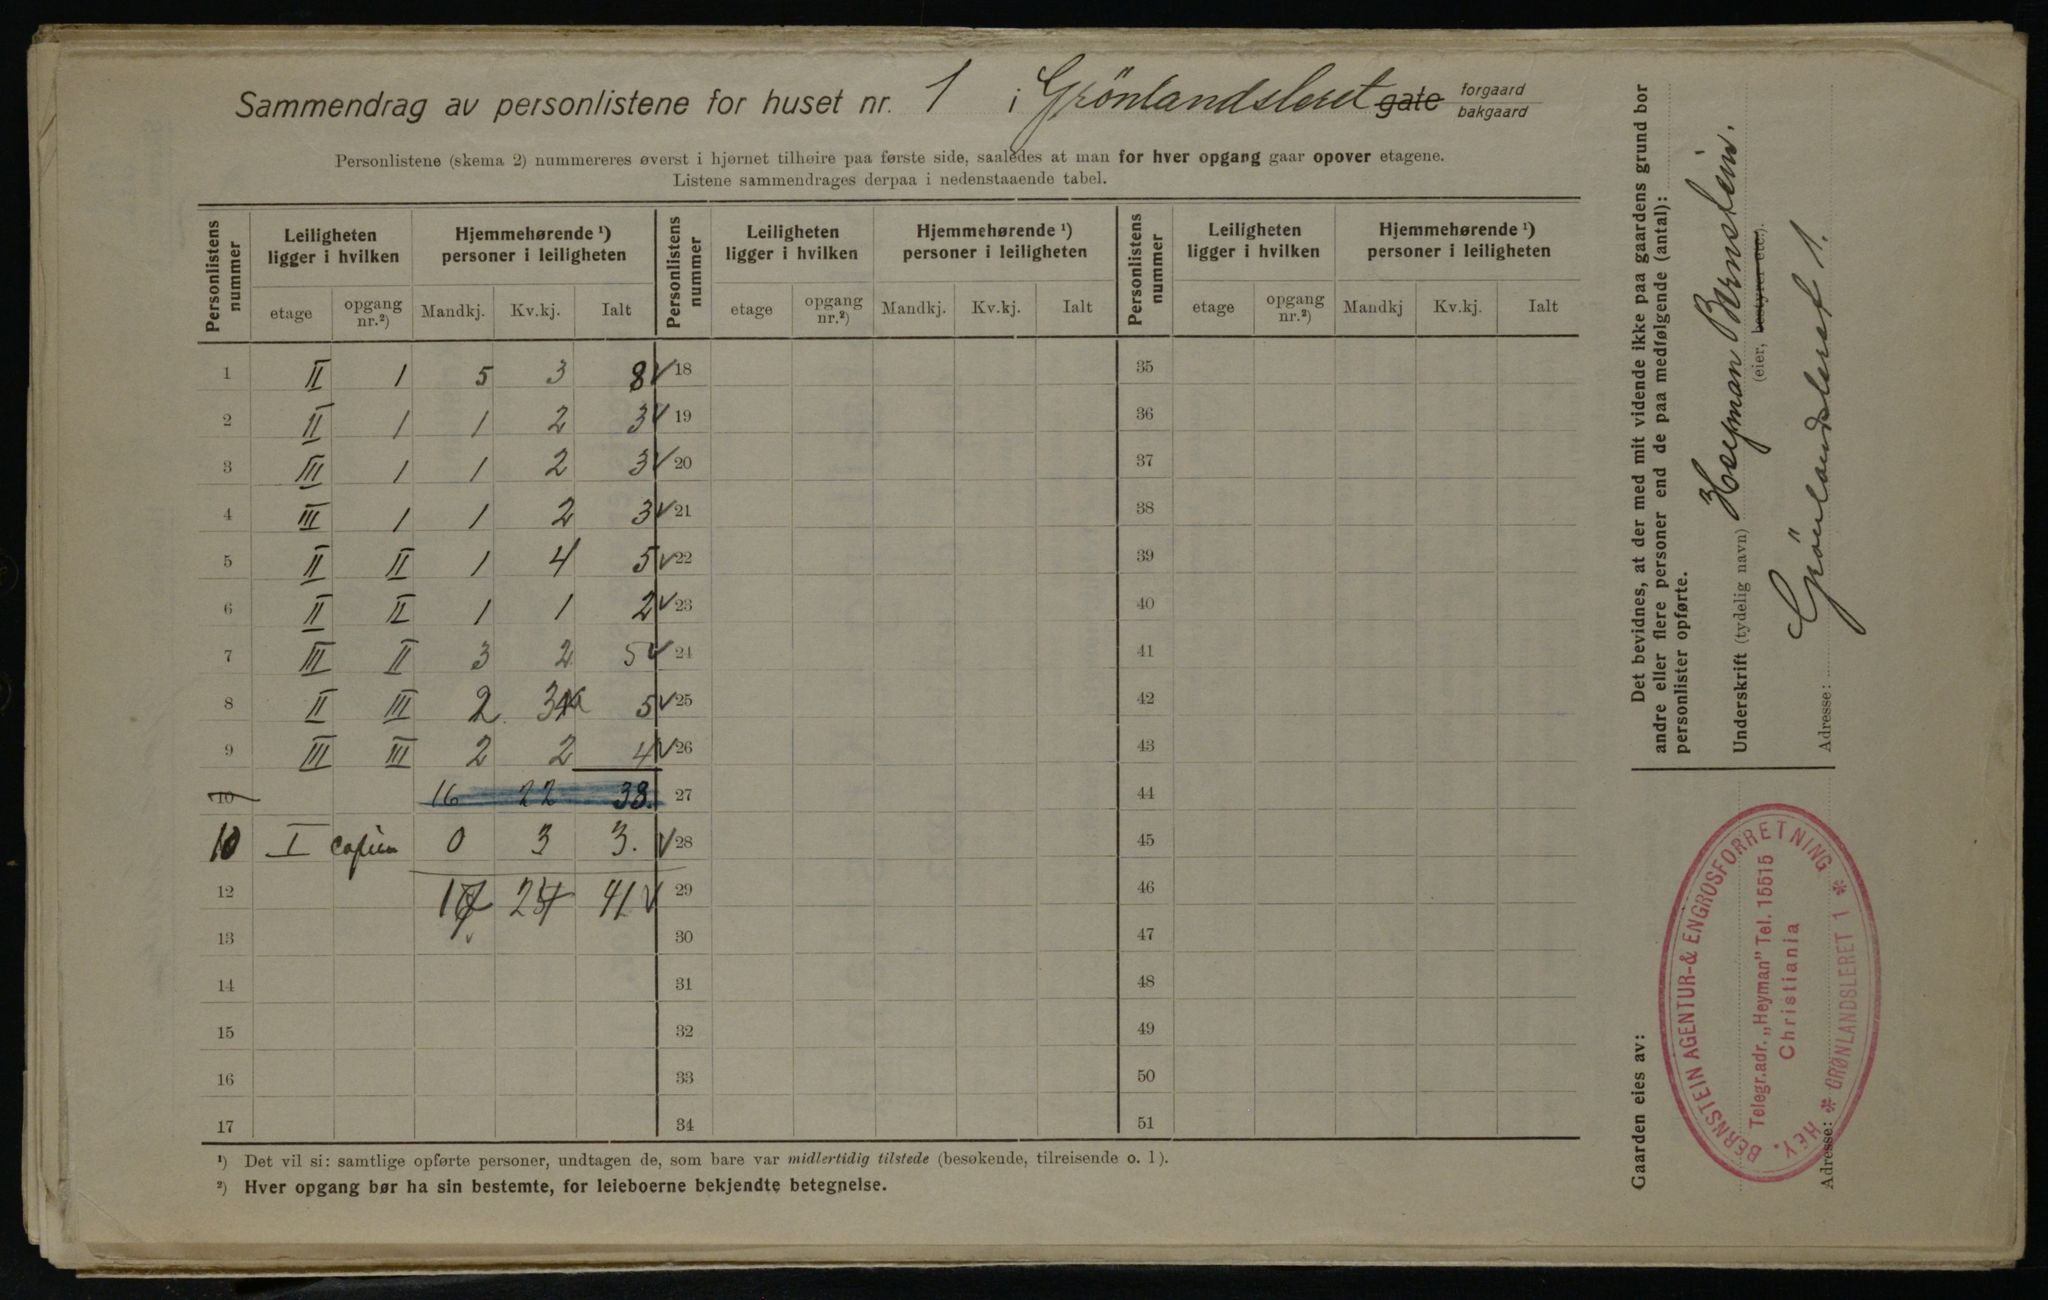 Sammendrag av personlistene for huset nr. 1 i Grönlandsleret gate forgaard
bakgaard
Personlistene (skema 2) nummereres øverst i hjørnet tilhøire paa første side, saaledes at man for hver opgang gaar opover etagene.
Listene sammendrages derpaa i nedenstaaende tabel.
Personlistens nummer Leiligheten ligger i hvilken Hjemmehørende ¹) personer i leiligheten Personlistens nummer Leiligheten ligger i hvilken Hjemmehørende ¹) personer i leiligheten Personlistens nummer Leiligheten ligger i hvilken Hjemmehørende ¹) personer i leiligheten
etage opgang nr.²) Mandkj. Kv.kj. Ialt etage opgang nr.²) Mandkj. Kv.kj. Ialt etage opgang nr.²) Mandkj Kv.kj. Ialt
1 II 1 5 3 8 ✓ 18 35
2 II 1 1 2 3 ✓ 19 36
3 III 1 1 2 3 ✓ 20 37
4 III 1 1 2 3 ✓ 21 38
5 II II 1 4 5 ✓ 22 39
6 II II 1 1 2 ✓ 23 40
7 III II 3 2 5 ✓ 24 41
8 II III 2 3 5 ✓ 25 42
9 III III 2 2 4 ✓ 26 43
10 16 22 38. 27 44
10 I 0 3 3. ✓ 28 45
12 41 ✓ 29 46
13 30 47
14 31 48
15 32 49
16 33 50
17 34 51
¹) Det vil si: samtlige opførte personer, undtagen de, som bare var midlertidig tilstede (besøkende, tilreisende o. l).
²) Hver opgang bør ha sin bestemte, for leieboerne bekjendte betegnelse.
Det bevidnes, at der med mit vidende ikke paa gaardens grund bor
andre eller flere personer end de paa medfølgende (antal):
personlister opførte.
Underskrift (tydelig navn) Heyman Bernstein.
(eier, bestyrer etc.).
Adresse: Grönlandsleret 1.
Gaarden eies av:
HEY. BERNSTEIN AGENTUR-& ENGROSFORRETNING
Telegr.adr. „Heyman” Tel. 15515
Christiania
* GRØNLANDSLERET 1 *
Adresse: